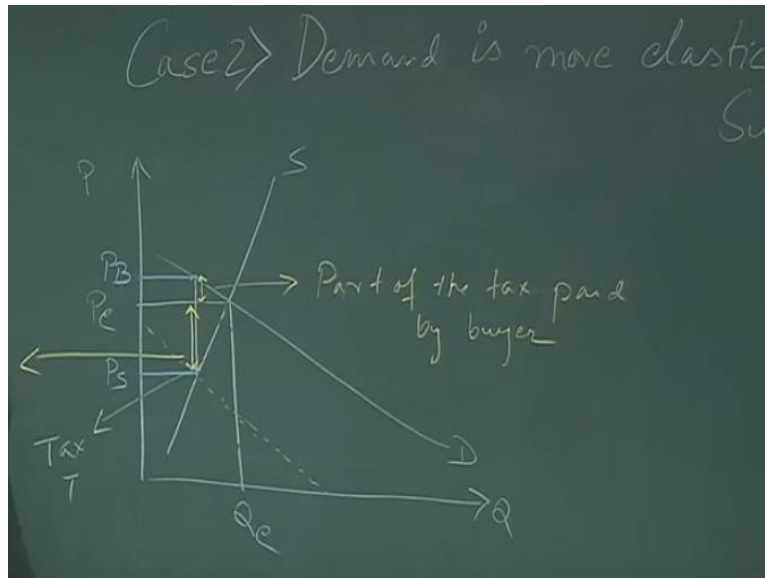 Case 2> Demand is more elastic
Su
S
P
P_B
Part of the tax paid
by buyer
P_e
P_S
Tax
T
D
Q_e
Q